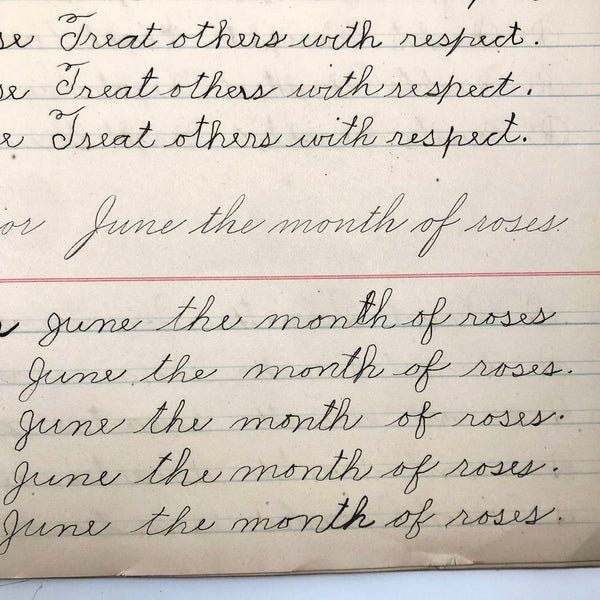 se Treat others with respect.
se Treat others with respect.
e Treat others with respect.
or June the month of roses.
June the month of roses
June the month of roses.
June the month of roses.
June the month of roses.
June the month of roses.